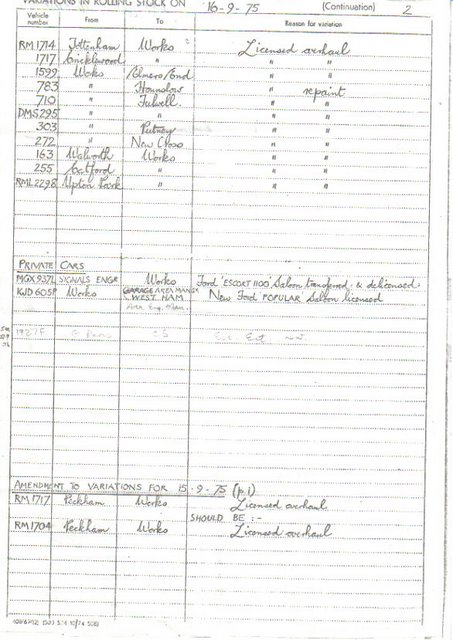 VARIATIONS IN ROLLING STOCK ON 16-9-75 (Continuation) 2
Vehicle number From To Reason for variation
RM1714 Tottenham Works Licensed overhaul
1717 Cricklewood " " "
1599 Works Elmers End " "
783 " Hounslow " repaint
710 " Fulwell " "
DMS295 " " " "
303 " Putney " "
272 " New Cross " "
163 Walworth Works " "
255 Catford " " "
RML2298 Upton Park " " "
PRIVATE CARS
MGX937L SIGNALS ENGR Works Ford 'ESCORT 1100' Saloon transferred & delicensed
KJD605P Works GARAGE AREA MANGR WEST HAM New Ford POPULAR Saloon licensed
AMENDMENT TO VARIATIONS FOR 15-9-75 (p.1)
RM1717 Peckham Works Licensed overhaul
SHOULD BE :-
RM1704 Peckham Works Licensed overhaul